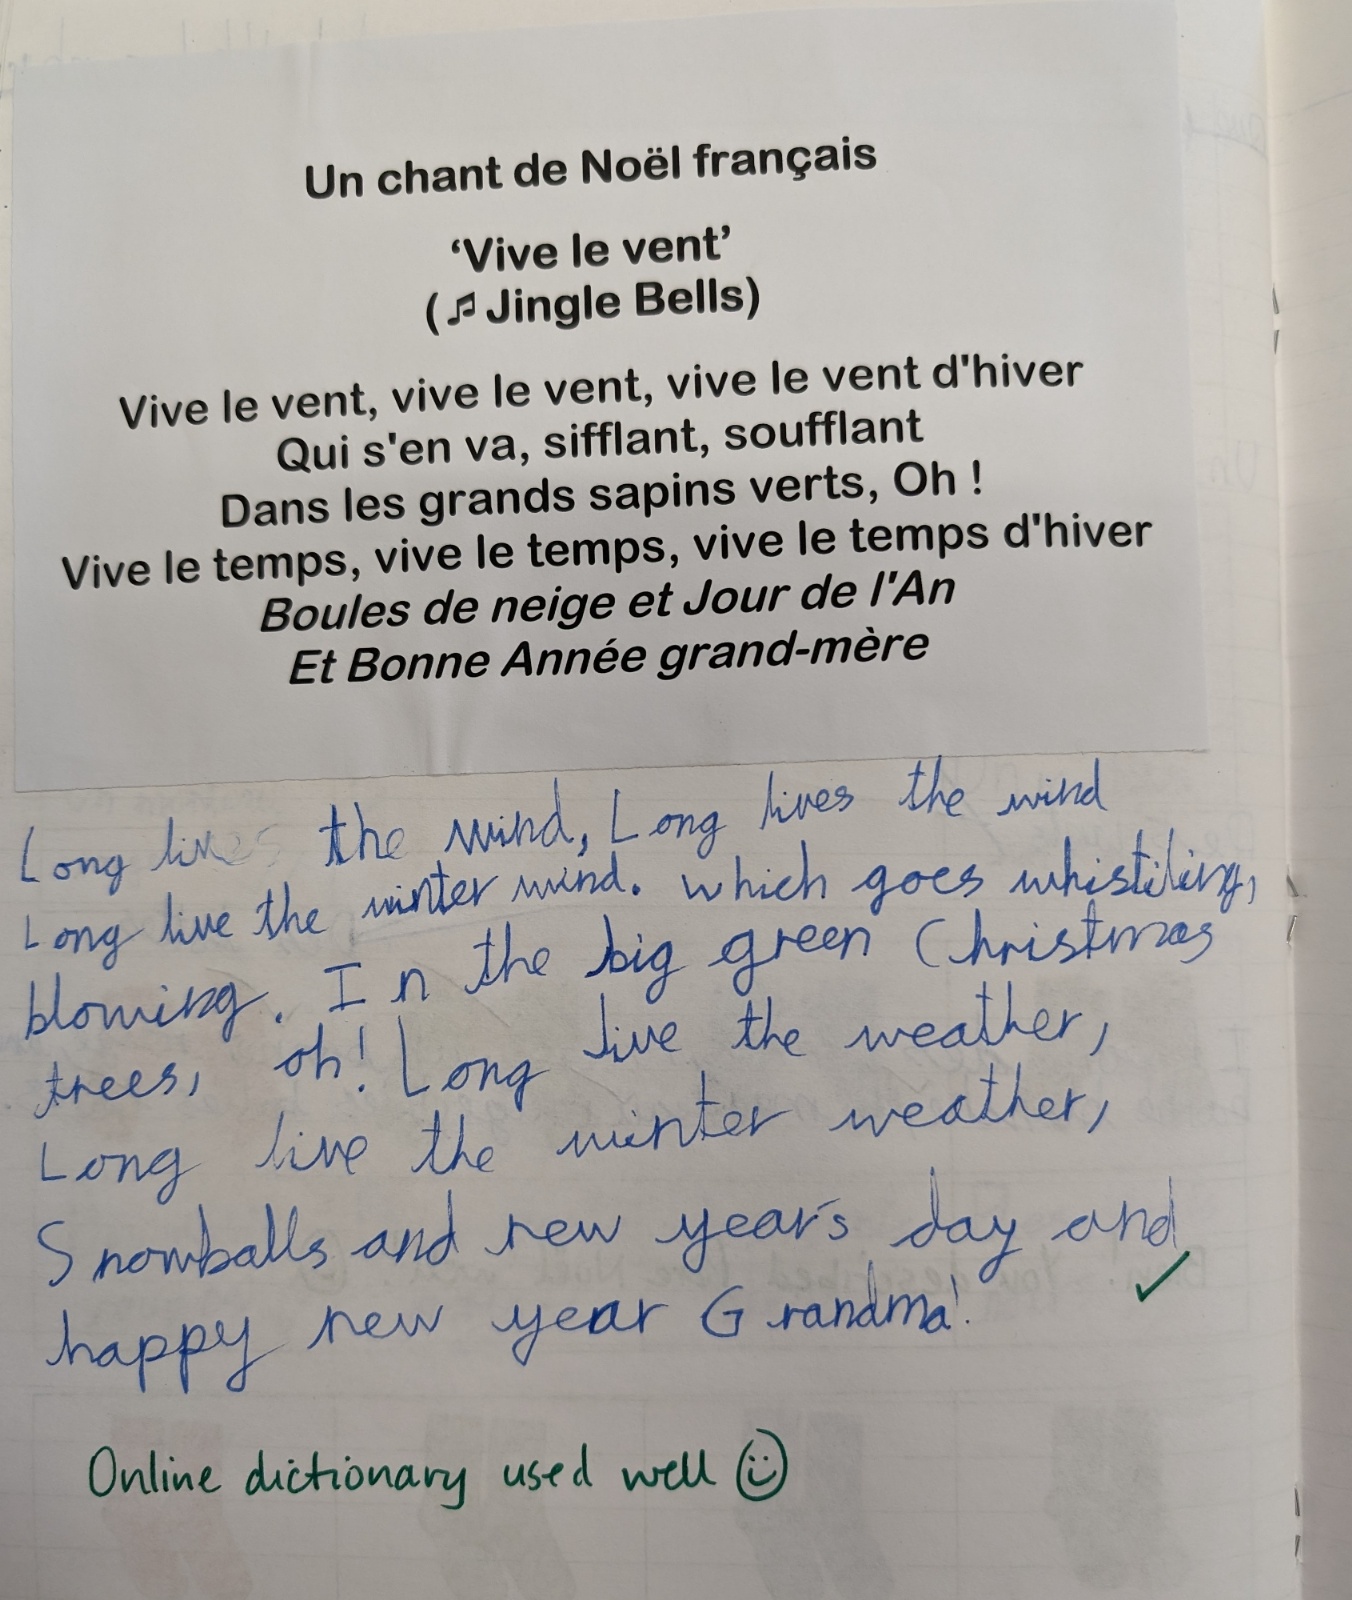 Un chant de Noël français
‘Vive le vent’
(♫ Jingle Bells)
Vive le vent, vive le vent, vive le vent d'hiver
Qui s'en va, sifflant, soufflant
Dans les grands sapins verts, Oh !
Vive le temps, vive le temps, vive le temps d'hiver
Boules de neige et Jour de l'An
Et Bonne Année grand-mère
Long lives the wind, Long lives the wind
Long live the winter wind. which goes whistiling,
blowing. In the big green Christmas
trees, oh! Long live the weather,
Long live the winter weather,
Snowballs and new year's day and
happy new year Grandma!
Online dictionary used well ☺